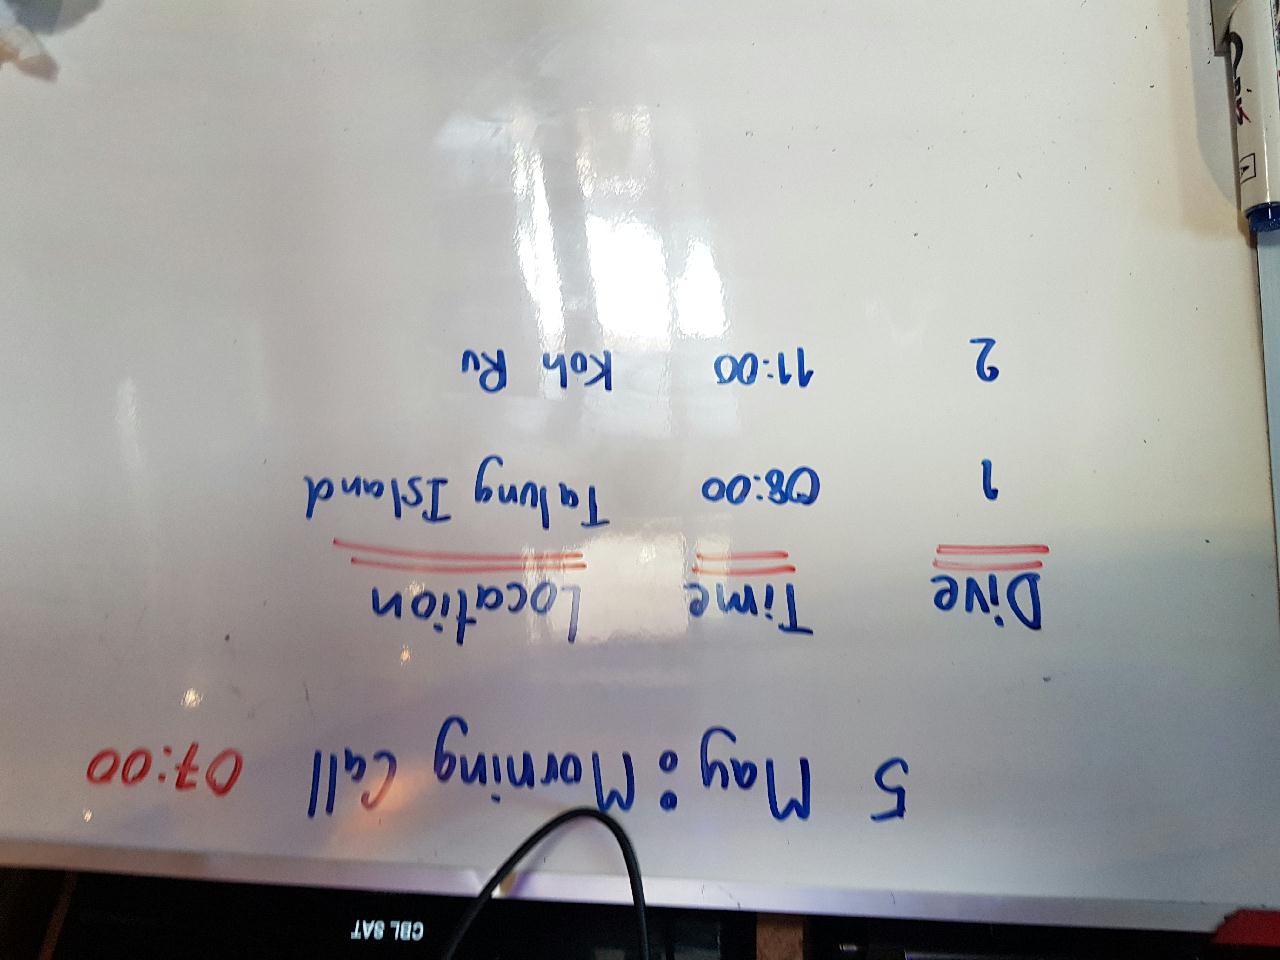 CBL SAT
5 May: Morning Call 07:00
Dive Time Location
1 08:00 Talung Island
2 11:00 Koh Ru